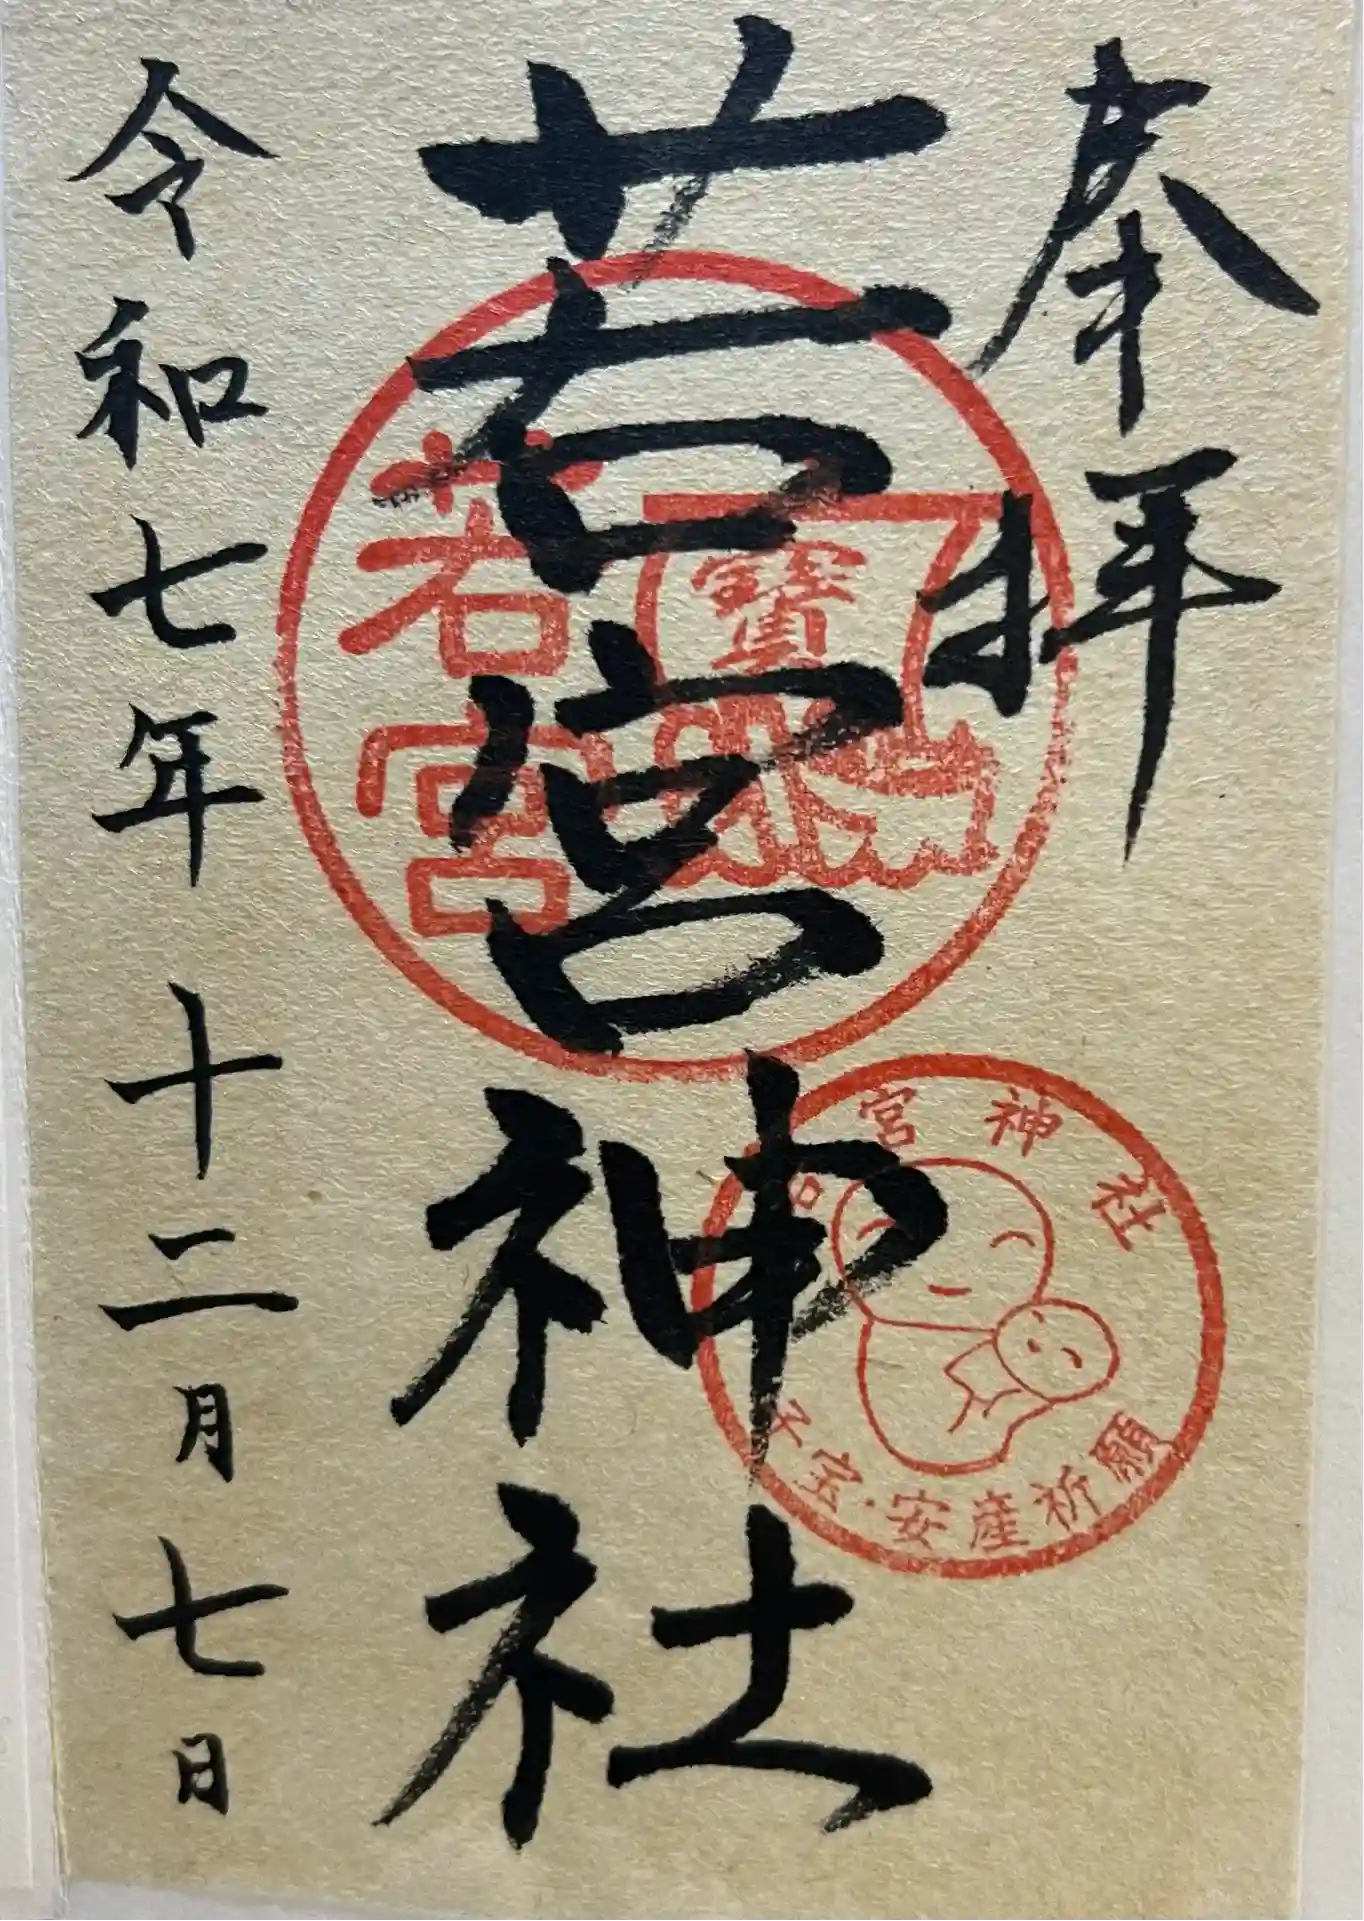 奉拝
若宮神社
令和七年十二月七日
若宮
寶
若宮神社
子宝・安産祈願